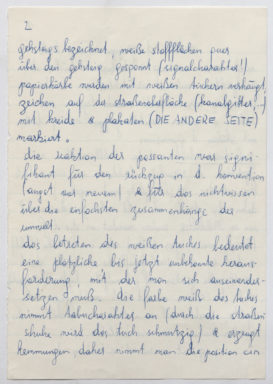 2
gehsteigs bezeichnet. weiße stoffflächen quer
über den gehsteig gespannt (signalcharakter!)
papierkörbe wurden mit weißen tüchern verhängt,
zeichen auf der straßenoberfläche (kanalgitter!)
mit kreide & plakaten (DIE ANDERE SEITE)
markiert.
die reaktion der passanten war signi-
fikant für den rückzug in d. konvention
(angst vor neuem) & für das nichtwissen
über die einfachsten zusammenhänge der
umwelt.
das betreten des weißen tuches bedeutet
eine plötzliche bis jetzt unbekannte heraus-
forderung, mit der man sich auseinander-
setzen muß. die farbe weiß des tuches
nimmt tabucharakter an (durch die straßen
schuhe wird das tuch schmutzig) & erzeugt
hemmungen daher nimmt man die position ein